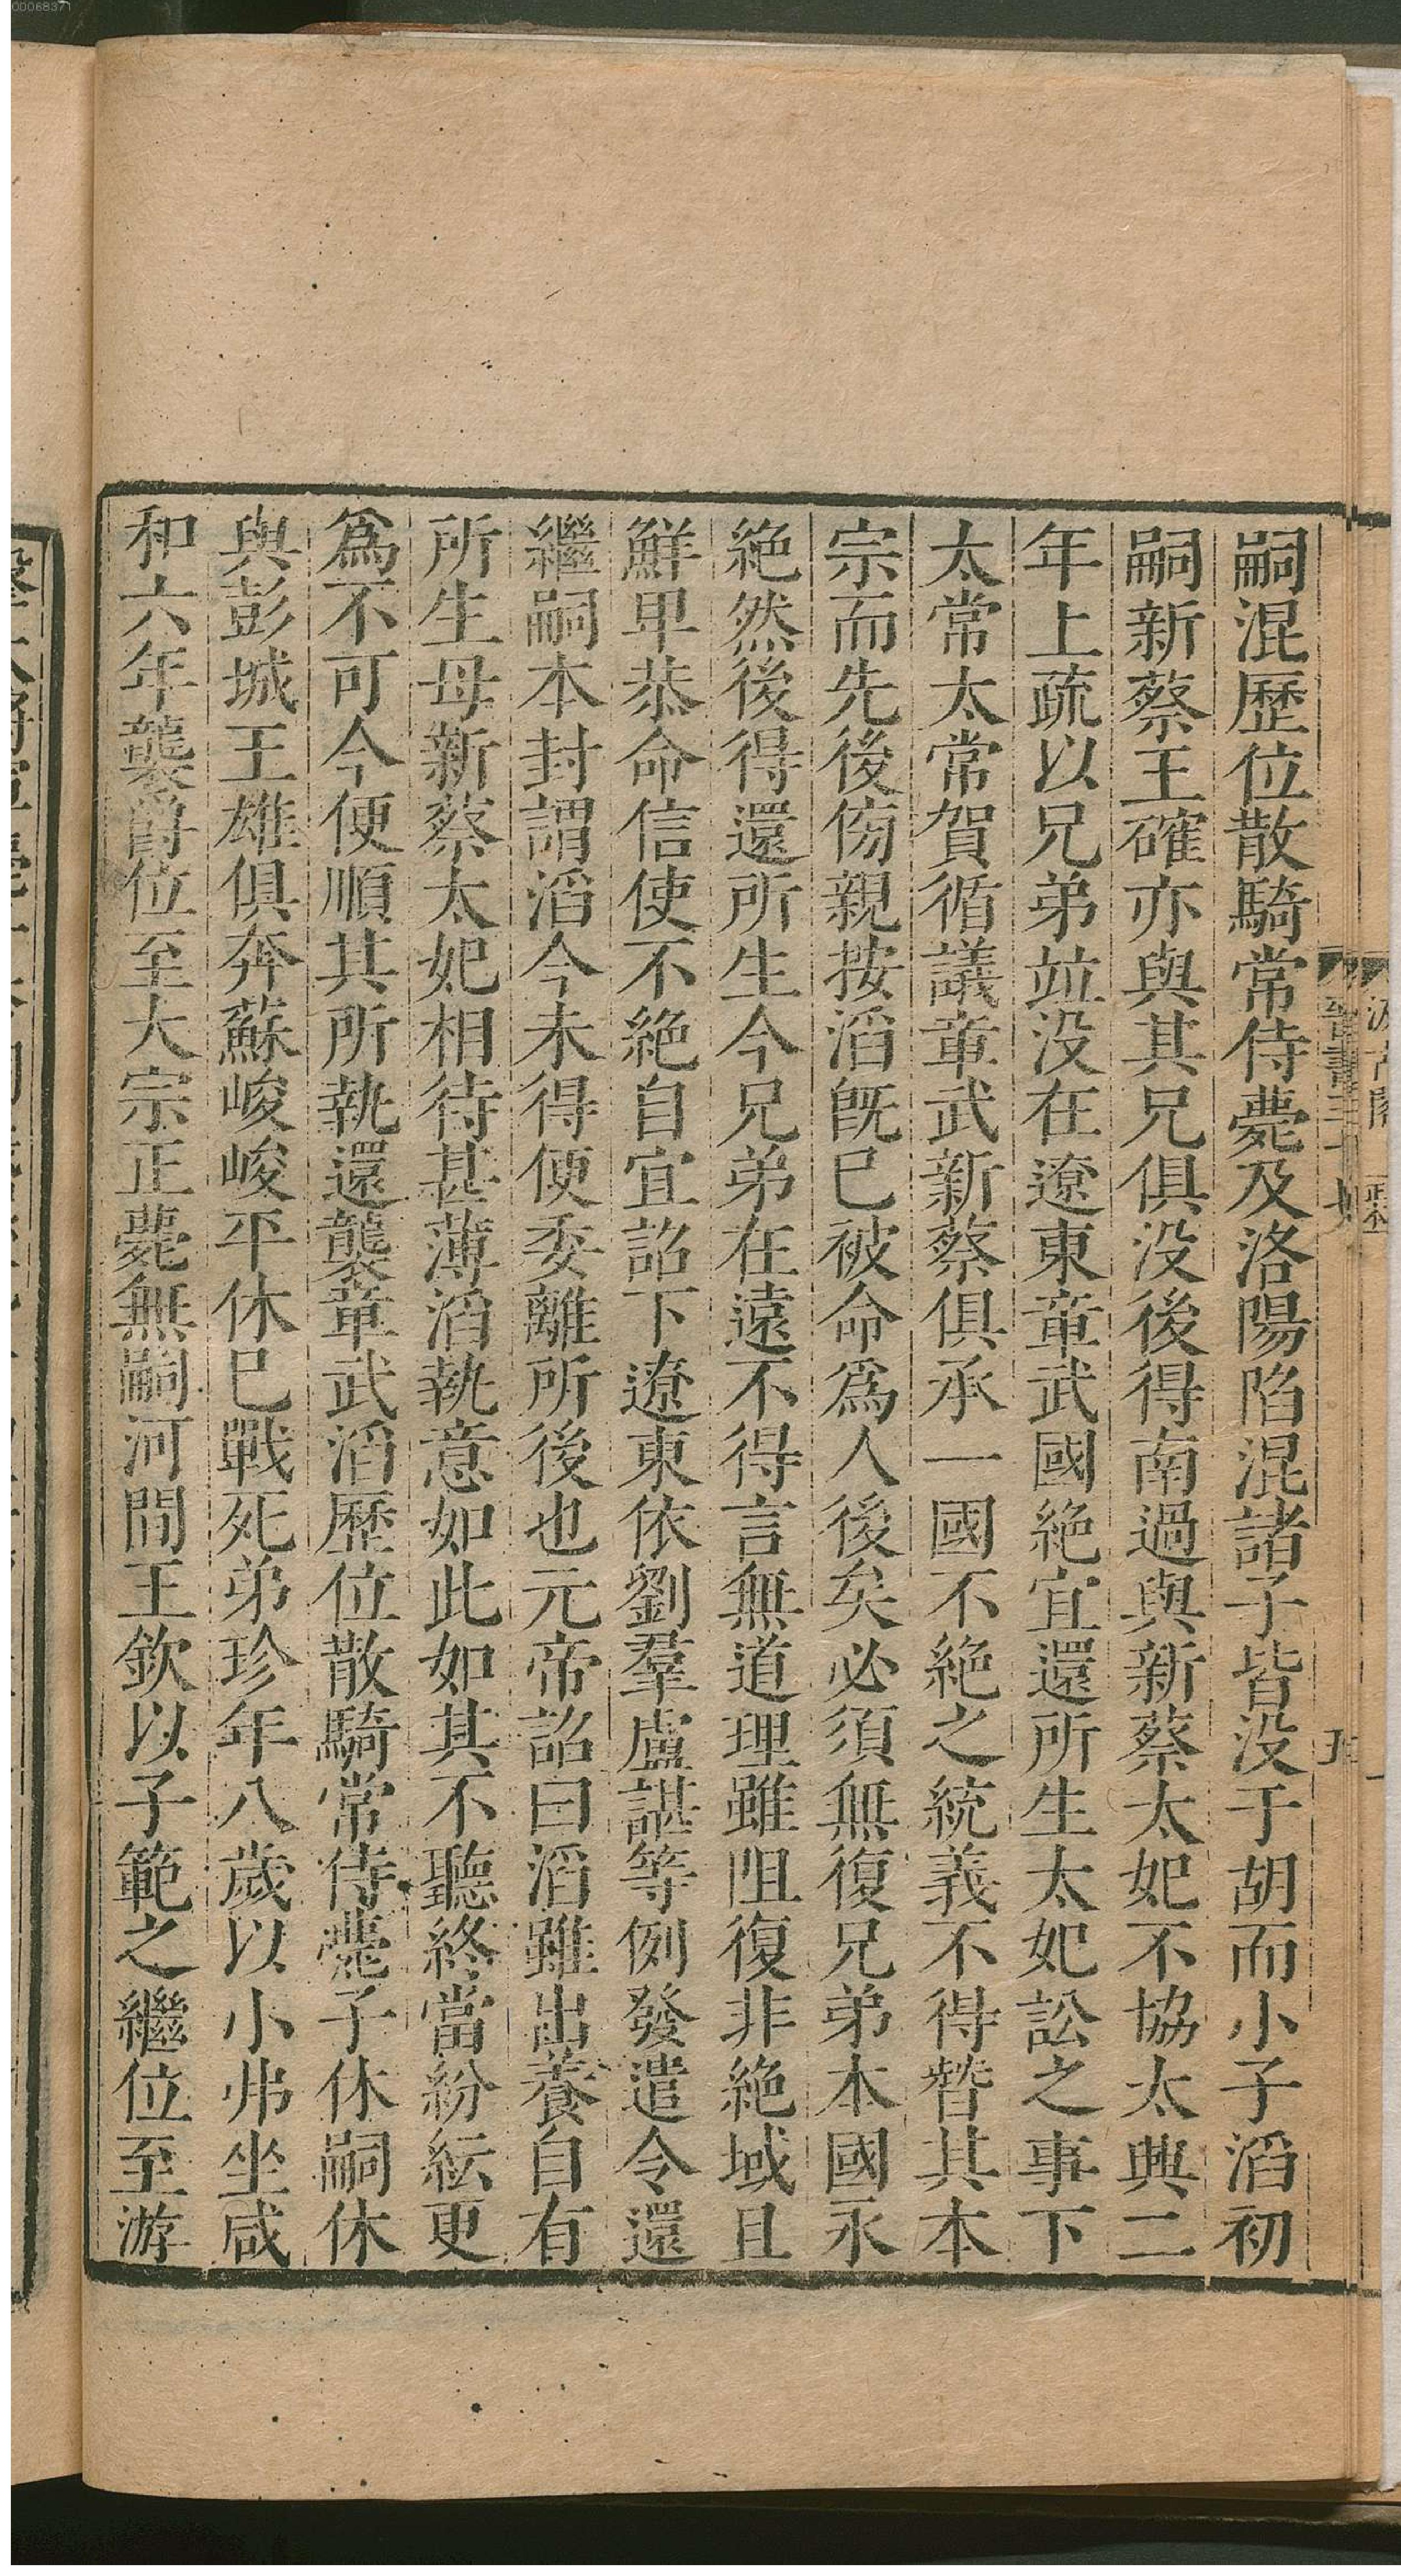 00068371
嗣混歷位散騎常侍薨及洛陽陷混諸子皆没于胡而小子滔初
嗣新蔡王確亦與其兄俱没後得南過與新蔡太妃不協太興二
年上疏以兄弟竝没在遼東章武國絶宜還所生太妃訟之事下
太常太常賀循議章武新蔡俱承一國不絶之統義不得替其本
宗而先後傍親按滔旣已被命爲人後矣必須無復兄弟本國永
絶然後得還所生今兄弟在遠不得言無道理雖阻復非絶域且
鮮卑恭命信使不絶自宜詔下遼東依劉羣盧諶等例發遣令還
繼嗣本封謂滔今未得便委離所後也元帝詔曰滔雖出養自有
所生母新蔡太妃相待甚薄滔執意如此如其不聽終當紛紜更
爲不可今便順其所執還襲章武滔歷位散騎常侍薨子休嗣休
與彭城王雄俱奔蘇峻峻平休已戰死弟珍年八歲以小弗坐咸
和六年襲爵位至大宗正薨無嗣河間王欽以子範之繼位至游